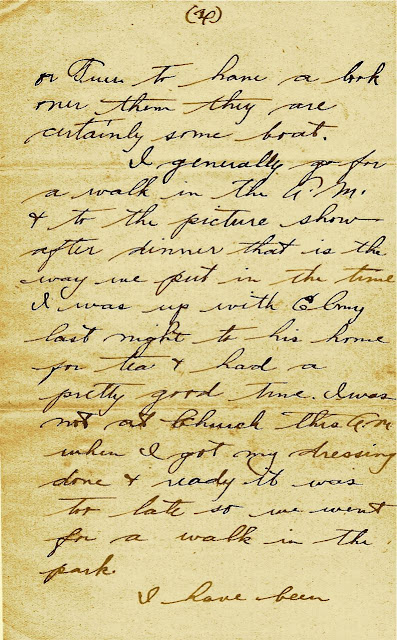 (4)
or Tues to have a look
over them they are
certainly some boat.
I generally go for
a walk in the A.M.
& to the picture show
after dinner that is the
way we put in the time
I was up with
last night to his home
for tea & had a
pretty good time. I was
not at Church this A.M
when I got my dressing
done & ready it was
too late so we went
for a walk in the
park.
I have been